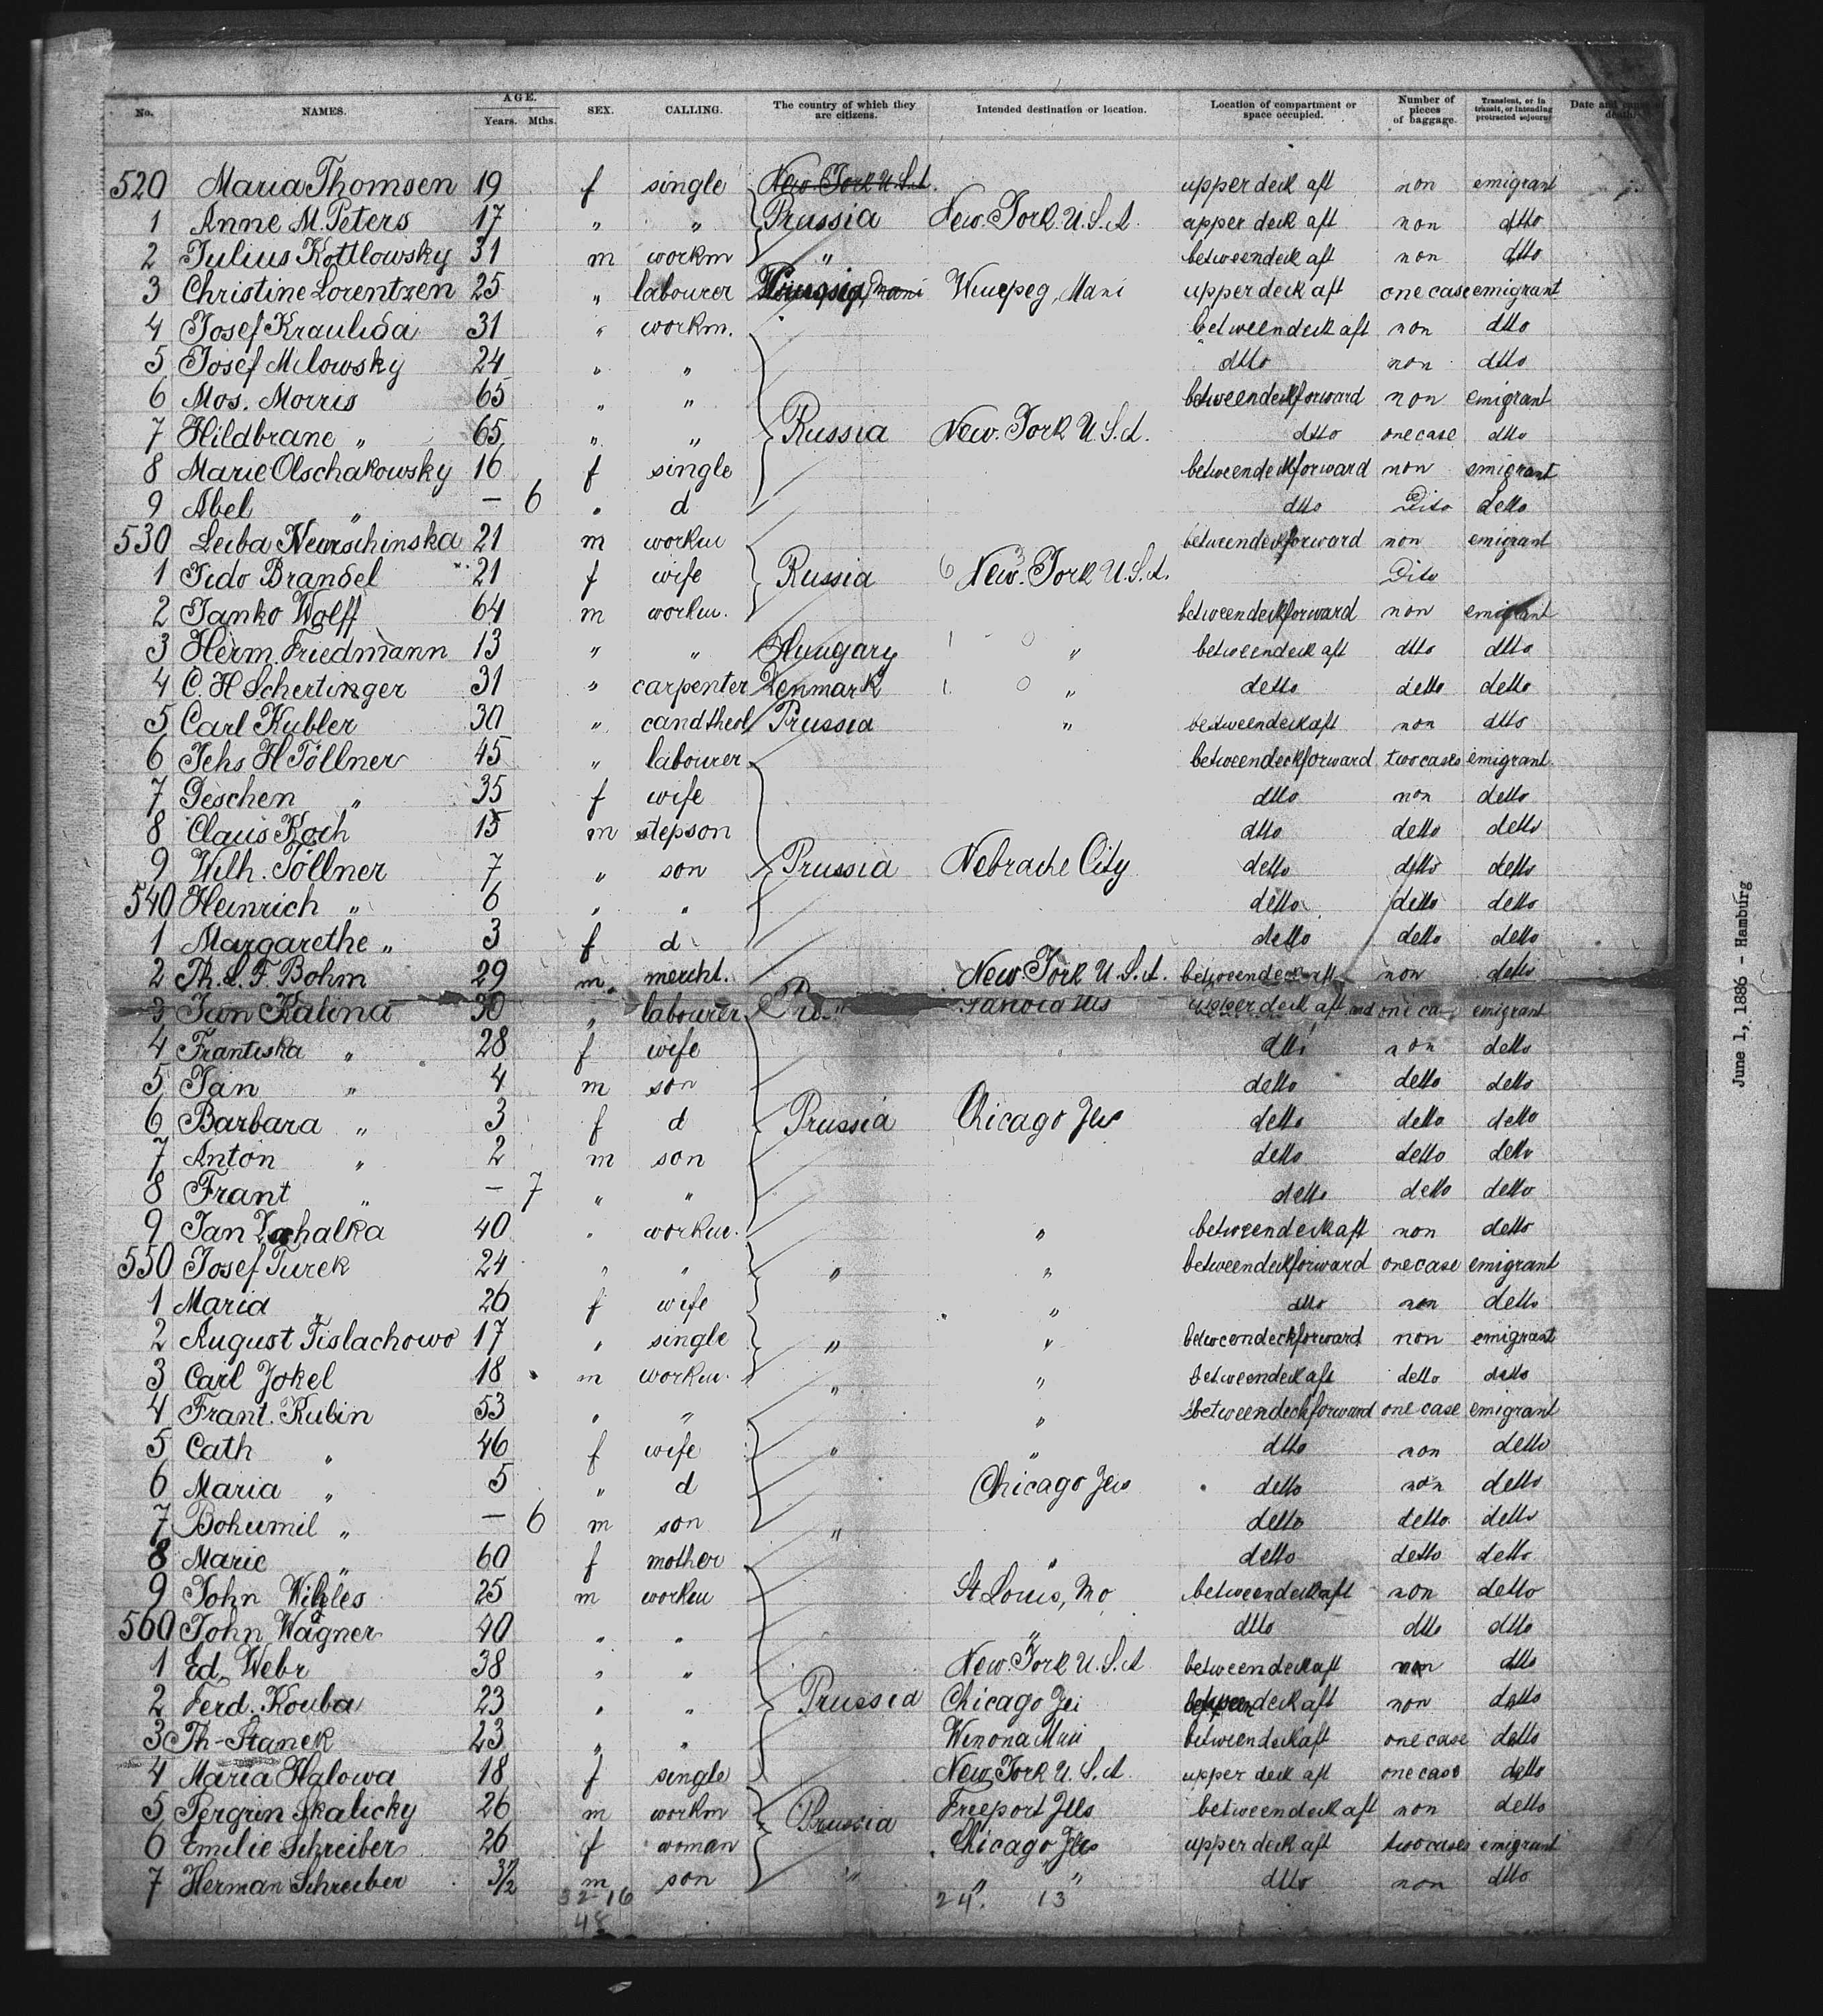 No. NAMES. AGE. Years. Mths. SEX. CALLING. The country of which they are citizens. Intended destination or location. Location of compartment or space occupied. Number of pieces of baggage. Transient, or in transit, or intending protracted sojourn Date and cause of death.
520 Maria Thomsen 19 f single New York U.S.A. upper deck aft non emigrant
1 Anne M. Peters 17 " " Prussia New York U.S.A. upper deck aft non dtto
2 Julius Kottlowsky 31 m workm " betweendeck aft non dtto
3 Christine Lorentzen 25 " labourer Winepeg, Mani upper deck aft one case emigrant
4 Josef Kraulida 31 " workm. betweendeck aft non dtto
5 Josef Milowsky 24 " " dtto non dtto
6 Mos. Morris 65 " " betweendeckforward non emigrant
7 Hildbrane " 65 " " Russia New York U.S.A. dtto one case dtto
8 Marie Olschakowsky 16 f single betweendeckforward non emigrant
9 Abel " — 6 " d dtto Dito detto
530 Leiba Newischinska 21 m workm betweendeckforward non emigrant
1 Jido Brandel 21 f wife Russia 6 3 New York U.S.A. Dito
2 Janko Wolff 64 m workm. betweendeckforward non emigrant
3 Herm. Friedmann 13 " " Hungary 1 0 " betweendeck aft dtto dtto
4 C. H Schertinger 31 " carpenter Denmark 1. 0 " detto detto detto
5 Carl Kubler 30 " candtheol Prussia " betweendeckaft non dtto
6 Jehs H Töllner 45 " labourer betweendeckforward two cases emigrant
7 Geschen " 35 f wife dtto non detto
8 Claus Koch 15 m stepson dtto detto detto
9 Wilh. Töllner 7 " son Prussia Nebrache City detto detto detto
540 Heinrich " 6 " " detto detto detto
1 Margarethe " 3 f d detto detto detto
2 Th. L. F. Bohm 29 m. mercht. New York U.S.A. betweendeckaft non detto
3 Jan Kalina 30 " labourer upper deck aft one emigrant
4 Frantiska " 28 f wife dtto non detto
5 Jan " 4 m son detto detto detto
6 Barbara " 3 f d Prussia Chicago Jlls detto detto detto
7 Anton " 2 m son detto detto detto
8 Frant " — 7 " " detto detto detto
9 Jan Zachalka 40 " workm. " betweendeckaft non detto
550 Josef Turek 24 " " " " betweendeckforward one case emigrant
1 Maria " 26 f wife " dtto non detto
2 August Tislachowo 17 " single " " betweendeckforward non emigrant
3 Carl Jokel 18 m workm. " " betweendeck aft detto detto
4 Frant. Rubin 53 " " " betweendeckforward one case emigrant
5 Cath " 46 f wife " " dtto non detto
6 Maria " 5 " d Chicago Jlls detto non detto
7 Bohumil " — 6 m son " detto detto detto
8 Marie " 60 f mother " detto detto detto
9 John 25 m workm St Louis, Mo betweendeckaft non detto
560 John Wagner 40 " " " dtto dtto dtto
1 Ed. Webr 38 " " New York U.S.A betweendeckaft non dtto
2 Ferd. Kouba 23 " " Prussia Chicago Jli betweendeckaft non detto
3 Th. Stanek 23 " " Winona Min betweendeckaft one case detto
4 Maria Halowa 18 f single New York U.S.A. upper deck aft one case detto
5 Pergrin Skalicky 26 m workm Prussia Freeport Jlls betweendeckaft non detto
6 Emilie Schreiber 26 f woman Chicago Jlls upper deck aft two cases emigrant
7 Herman Schreiber 3/2 m son " " " dtto non dtto
32-16 24. 13
48
June 1, 1886 - Hamburg